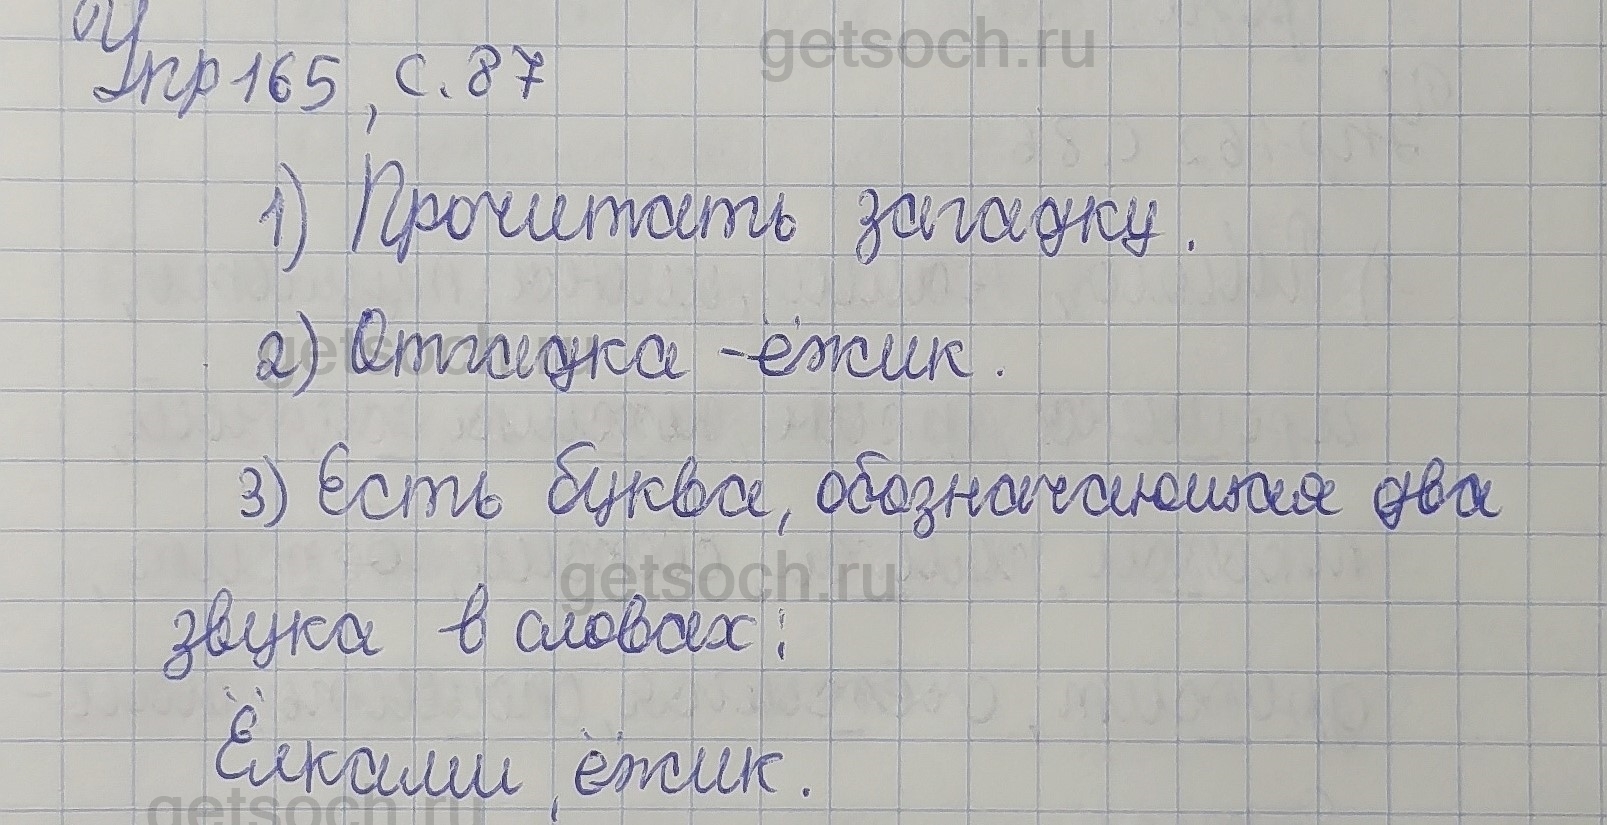 getsoch.ru
Упр 165, с. 87
1) Прочитать загадку.
getsoch.ru
2) Отгадка - ёжик.
3) Есть буква, обозначающая два
getsoch.ru
звука в словах:
Ёлками, ёжик.
getsoch.ru